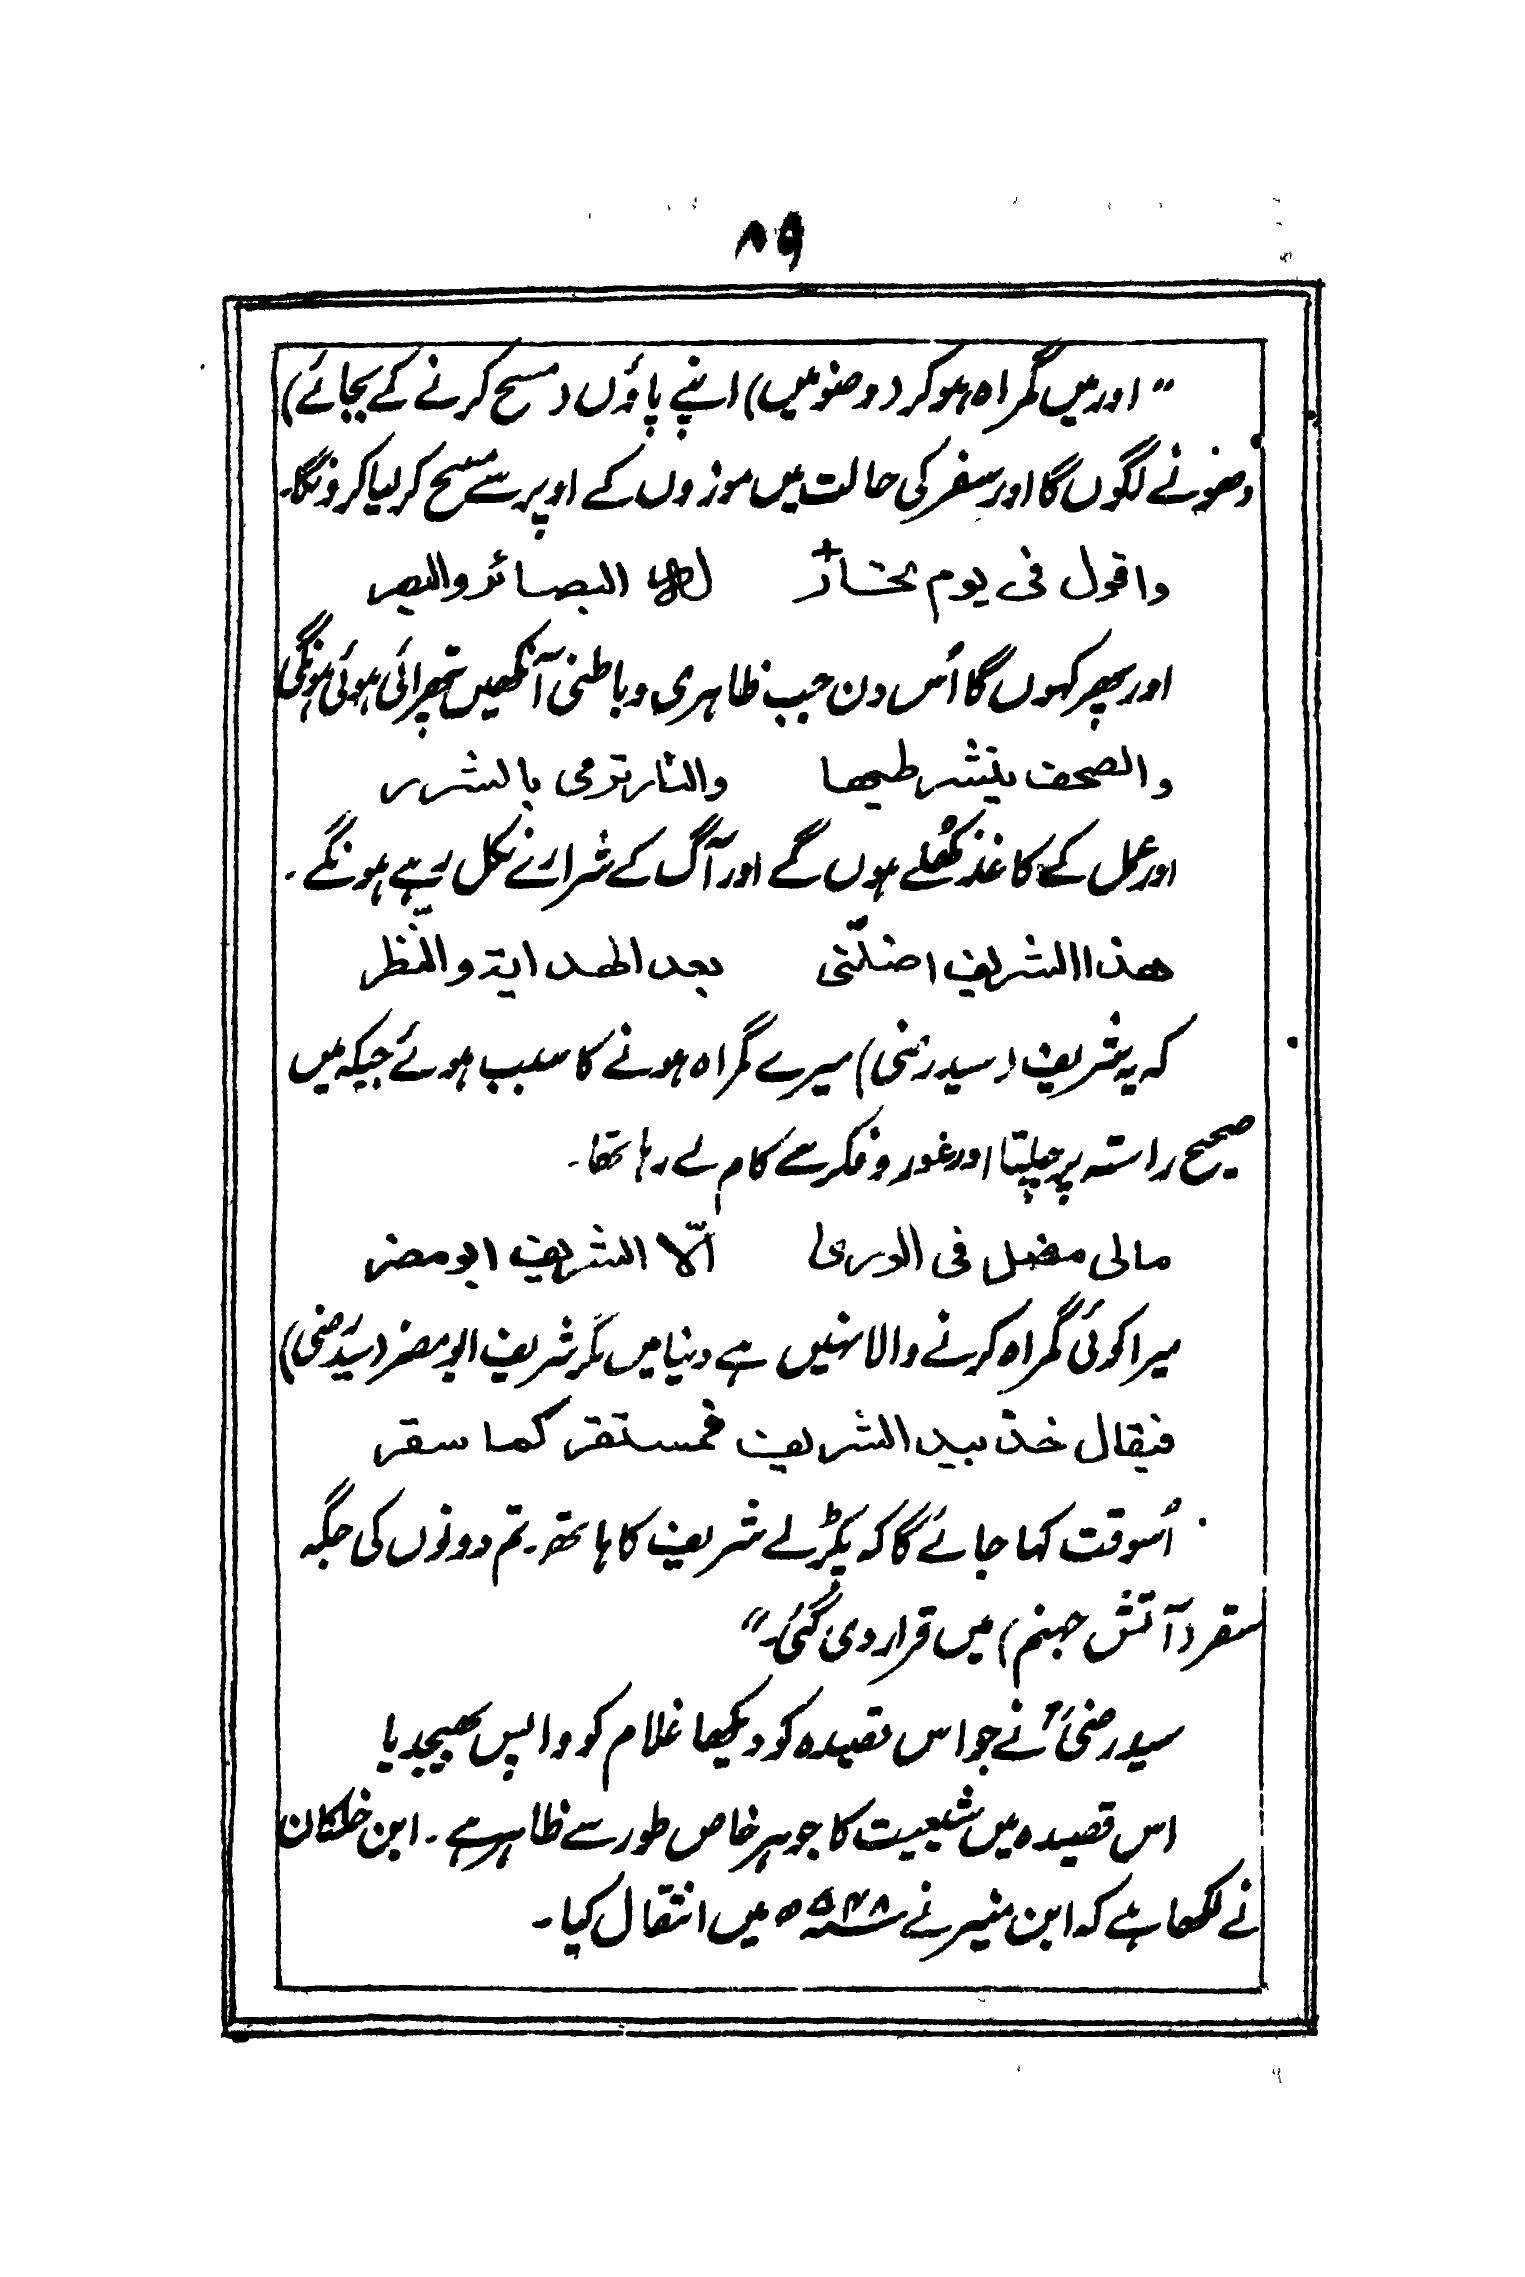 ۸۹
"اور میں گمراہ ہو کر (وضو میں) اپنے پاؤں (مسح کرنے کے بجائے)
دھونے لگوں گا اور سفر کی حالت میں موزوں کے اوپر سے مسح کر لیا کرونگا۔
واقول فی یوم تحار لہ البصائر والبصر
اور پھر کہوں گا اُس دن جب ظاہری و باطنی آنکھیں پتھرائی ہوئی ہونگی
والصحف ینشر طیھا والنار ترمی بالشرر
اور عمل کے کاغذ کھُلے ہوں گے اور آگ کے شرارے نکل رہے ہونگے۔
ھذا الشریف اضلّنی بعد الھدایۃ والنّظر
کہ یہ شریف (سید رضی) میرے گمراہ ہونے کا سبب ہوئے جبکہ میں
صحیح راستہ پر چلتا اور غور و فکر سے کام لے رہا تھا۔
مالی مضل فی الوری الّا الشریف ابو مضر
میرا کوئی گمراہ کرنے والا نہیں ہے دنیا میں مگر شریف ابو مضر (سیّد رضی)
فیقال خذ بید الشریف فمستقر کما سقر
اُسوقت کہا جائے گا کہ پکڑ لے شریف کا ہاتھ۔ تم دونوں کی جگہ
سقر (آتش جہنم) میں قرار دی گئی۔"
سید رضیؒ نے جو اس قصیدہ کو دیکھا غلام کو واپس بھیجدیا
اس قصیدہ میں شیعیت کا جوہر خاص طور سے ظاہر ہے۔ ابن خلکان
نے لکھا ہے کہ ابن منیر نے ۵۴۸ھ میں انتقال کیا۔